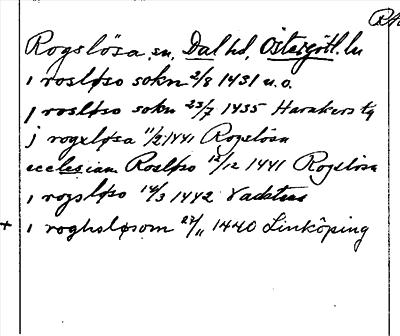 Rogslösa, sn, Dal hd, Östergötl. ln
i rosløso sokn 2/8 1431 u.o.
j rosløso sokn 23/7 1435
j rogxløsa 11/2 1441 Rogslösa
ecclesiam Rosløso 12/12 1441 Rogslösa
i rogsløso 14/3 1442 Vadstena
+ i roghsløsom 27/11 1440 Linköping